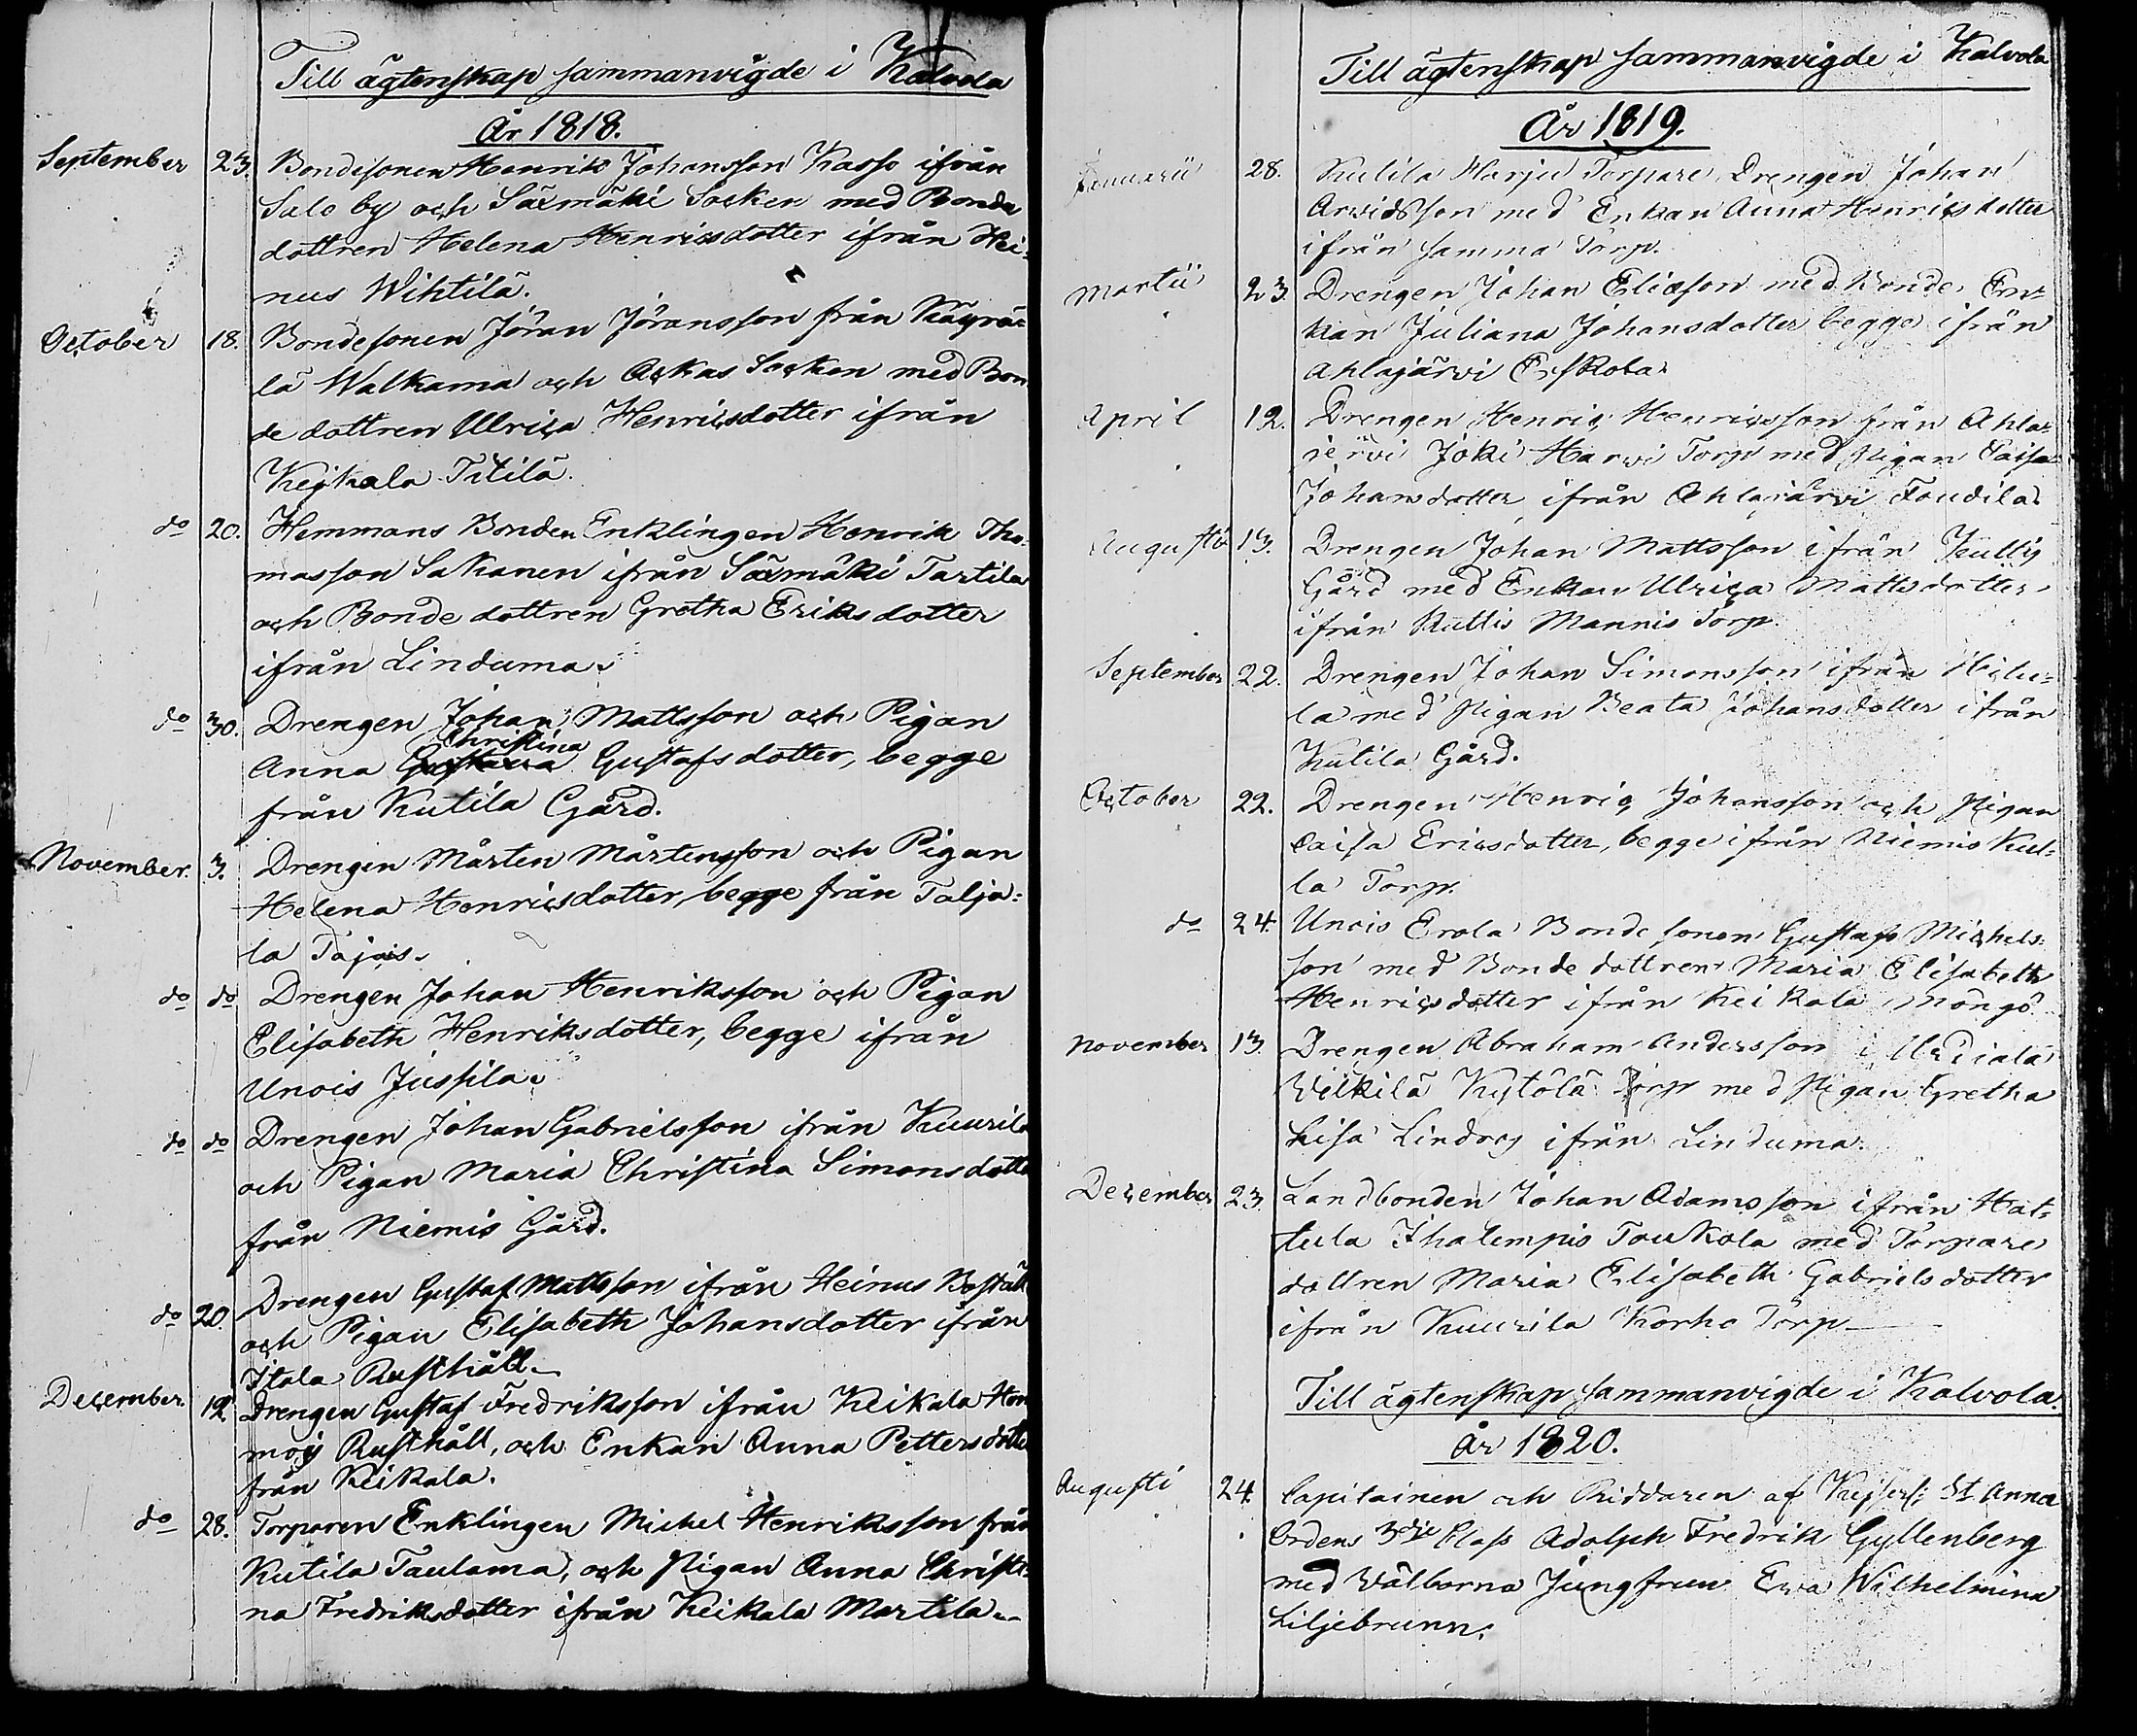 Till ägtenskap sammanvigde i Kalvola
År 1818.
September 23. Bondesonen Henrik Johansson Kasso ifrån
Salo by och Säxmäki Socken med Bonde
dottren Helena Henricsdotter ifrån Hei-
nus Wihtilä.
October 18. Bondesonen Jöran Jöransson från Käyrä-
lä Walkama och Ackas Socken med Bon
de dottren Ulrica Henricsdotter ifrån
Keikala Titilä.
do 20. Hemmans Bonden Enklingen Henrik Tho-
masson Sakanen ifrån Säxmäki Tartila
och Bonde dottren Gretha Eriksdotter
ifrån Linduma.
do 30. Drengen Johan Mattsson och Pigan
Christina
Anna Gustava Gustafsdotter, begge
från Kutila Gård.
November. 3. Drengen Mårten Mårtensson och Pigan
Helena Henricsdotter, begge från Talja-
la Tajais.
do do Drengen Johan Henriksson och Pigan
Elisabeth Henriksdotter, begge ifrån
Unois Jussila.
do do Drengen Johan Gabrielsson ifrån Kuurila
och Pigan Maria Christina Simonsdotte
från Niemis Gård.
do 20. Drengen Gustaf Mattsson ifrån Heinus Boställ
och Pigan Elisabeth Johansdotter ifrån
Itala Rusthåll.
December. 12. Drengen Gustaf Fredriksson ifrån Keikala Hom
moij Rusthåll, och Enkan Anna Pettersdotte
från Keikala.
do 28. Torparen Enklingen Michel Henriksson från
Kutila Taulama, och Pigan Anna Christi-
na Fredriksdotter ifrån Keikala Martila
Till ägtenskap sammanvigde i Kalvola
År 1819.
Januarii 28. Kutila Harju Torpare Drengen Johan
Arvidsson med Enkan Anna Henricsdotter
ifrån samma Torp.
Martii 23. Drengen Johan Eliasson med Bonde En-
kan Juliana Johansdotter begge ifrån
Ahlajärvi Erskola.
April 12. Drengen Henric Henricsson från Ahla-
jervi Joki Harvi Torp med Pigan Caisa
Johansdotter ifrån Ahlajärvi Foudila.
Augusti 13. Drengen Johan Mattsson ifrån Kutlis
Gård med Enkan Ulrica Mattsdotter
ifrån Kutlis Mannis Torp.
September 22. Drengen Johan Simonsson ifrån
la med Pigan Beata Johansdotter ifrån
Kutila Gård.
October 22. Drengen Henric Johansson och Pigan
Caisa Ericsdotter, begge ifrån Niemis Kul-
la Torp.
do 24. Unois Erola Bonde sonen Gustaf Michels-
son med Bonde dottren Maria Elisabeth
Henricsdotter ifrån Keikala Möngö
November 13. Drengen Abraham Andersson i Urdiala
Wilkilä Kytölä Torp med Pigan Gretha
Lisa Lindroos ifrån Linduma.
December 23. Landbonden Johan Adamsson ifrån Hat-
tula Ihalempis Toukola med Torpare
dottren Maria Elisabeth Gabrielsdotter
ifrån Kuurila Korho Torp
Till ägtenskap sammanvigde i Kalvola.
År 1820.
Augusti 24. Capitainen och Riddaren af Kejserl: St Anna
Ordens 3dje Class Adolph Fredrik Gyllenberg
med Wälborna Jungfrun Ewa Wilhelmina
Liljebrunn.